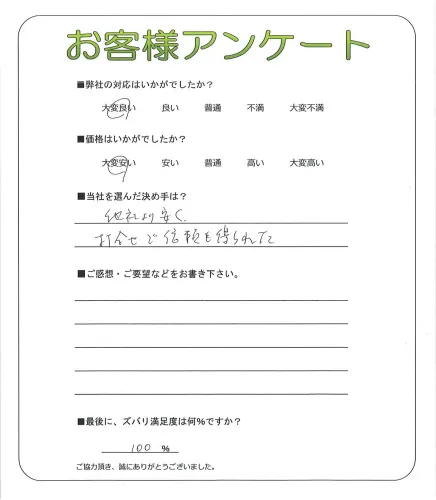 お客様アンケート
■弊社の対応はいかがでしたか？
大変良い 良い 普通 不満 大変不満
■価格はいかがでしたか？
大変安い 安い 普通 高い 大変高い
■当社を選んだ決め手は？
他社より安く、
打合せで信頼も得られた
■ご感想・ご要望などをお書き下さい。
■最後に、ズバリ満足度は何%ですか？
100 %
ご協力頂き、誠にありがとうございました。